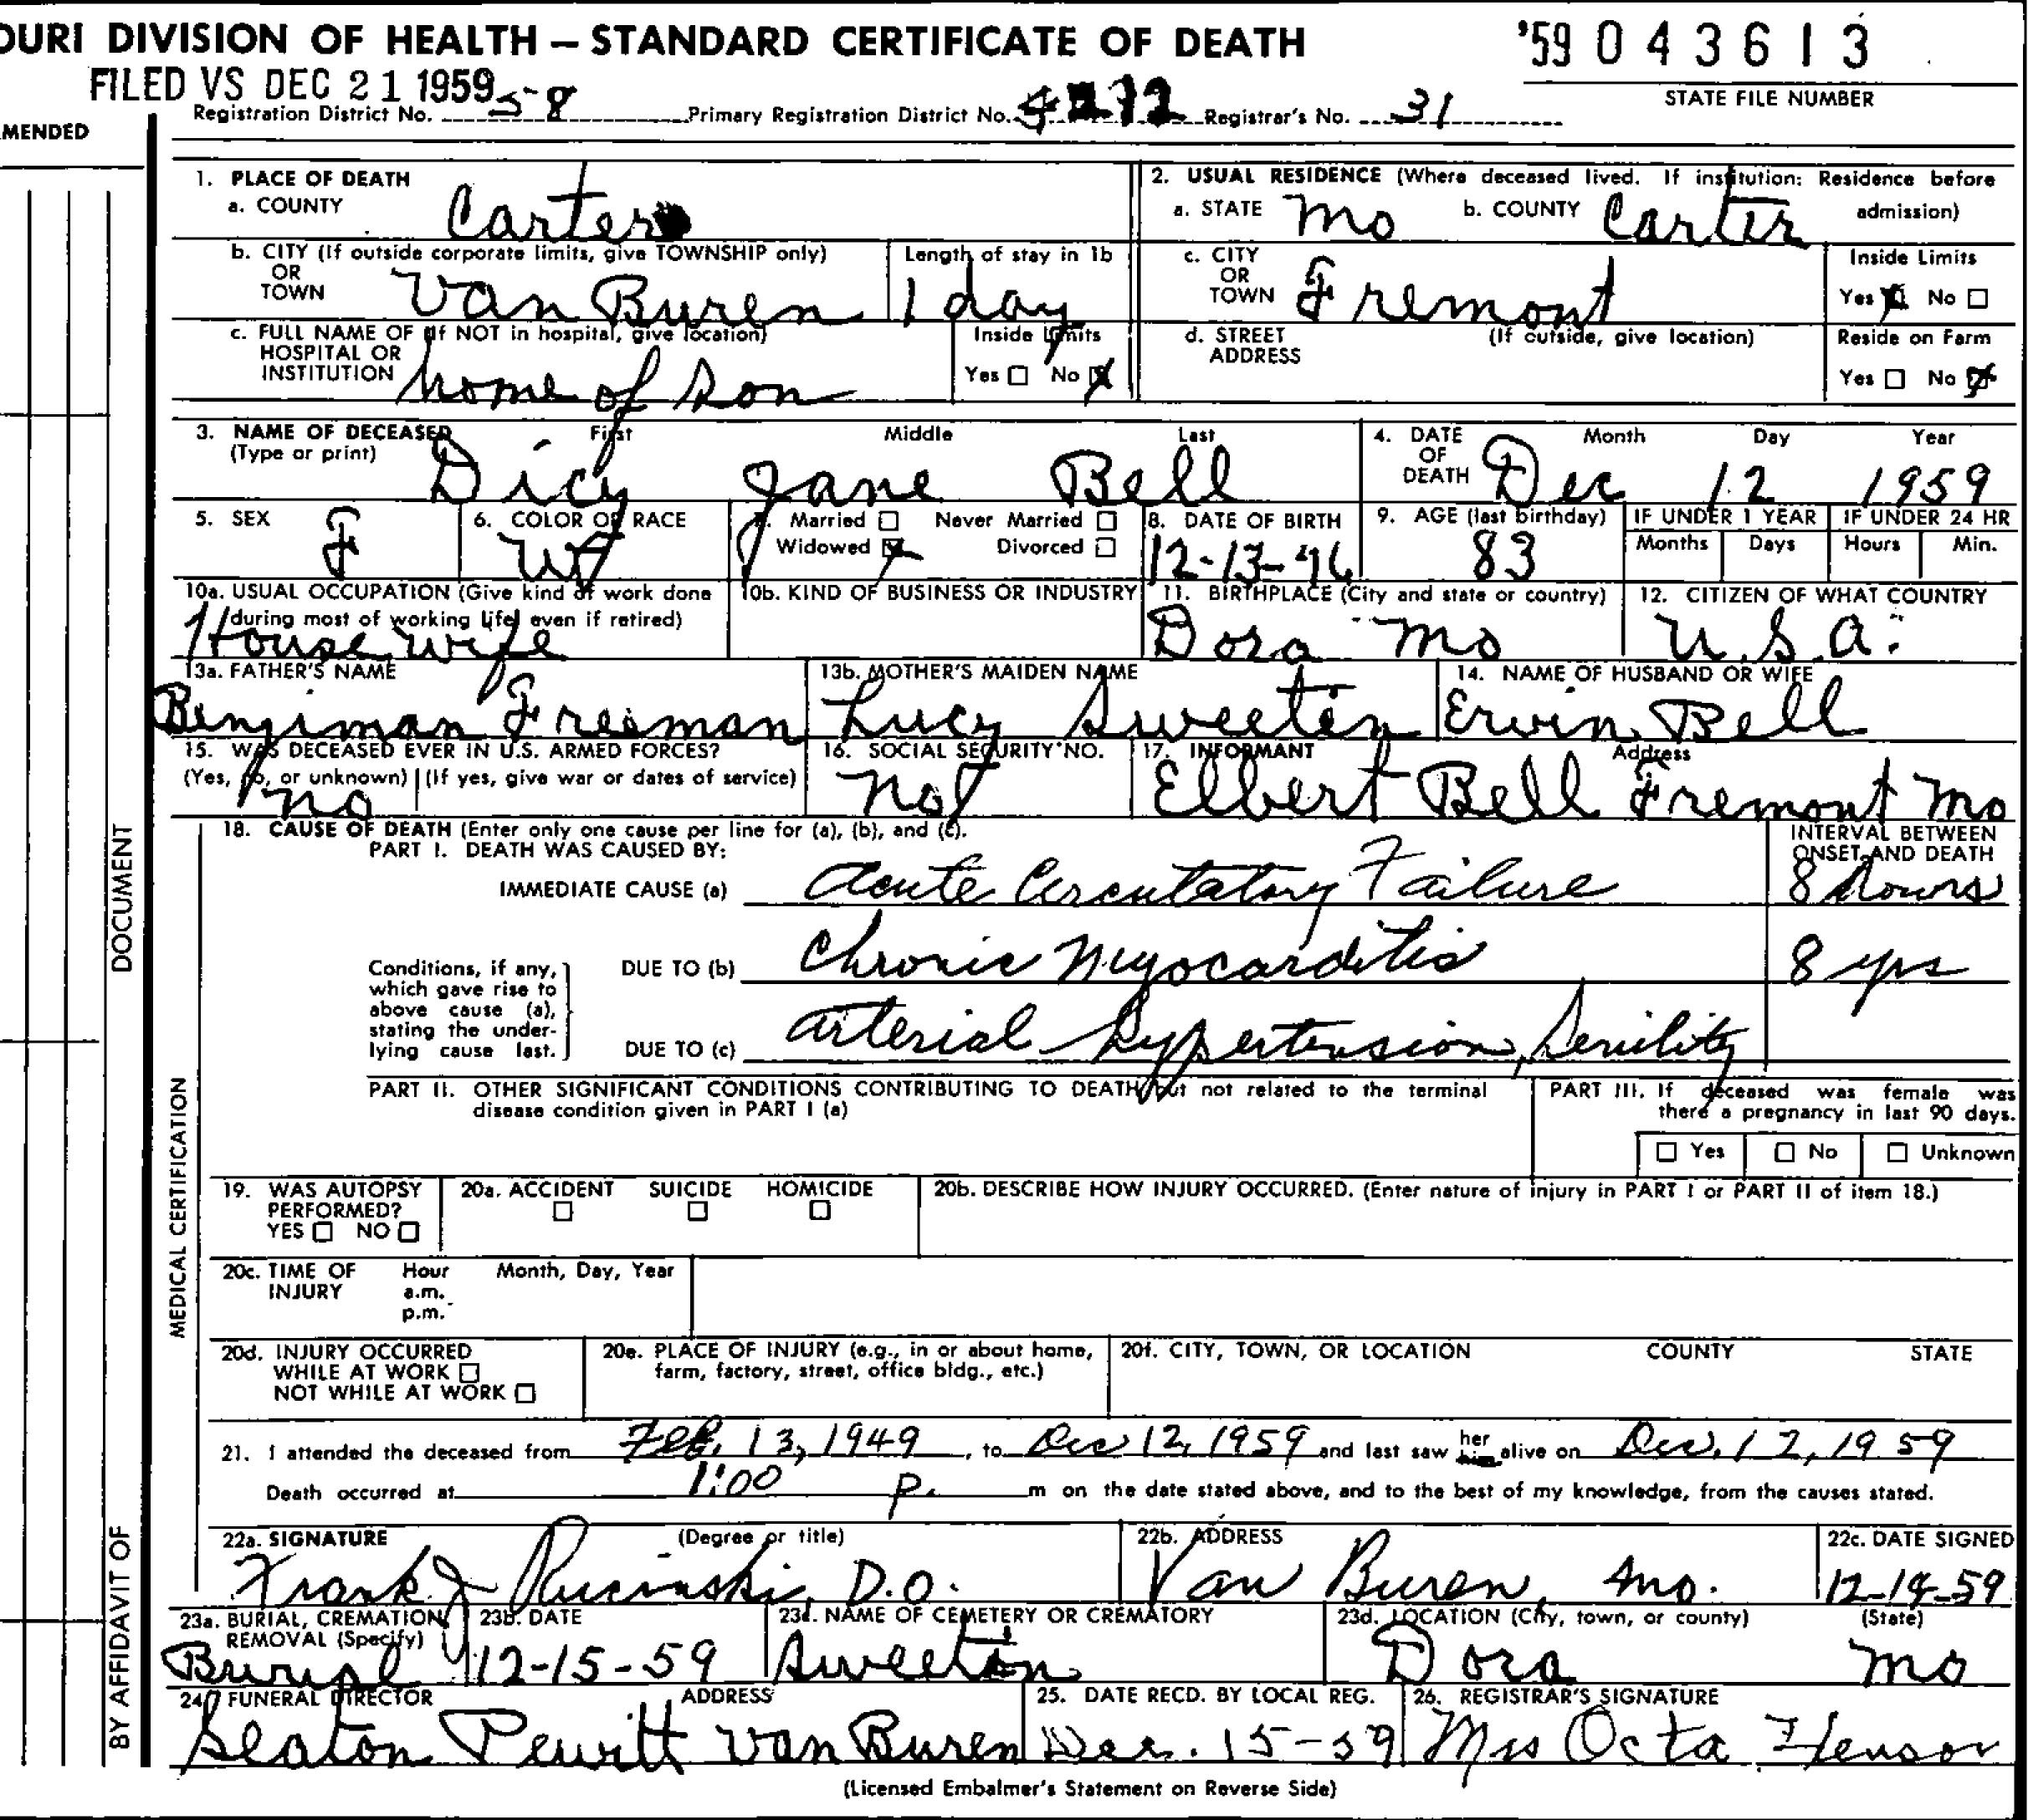 OURI DIVISION OF HEALTH – STANDARD CERTIFICATE OF DEATH
'59 043613
FILED VS DEC 21 1959
STATE FILE NUMBER
Registration District No. 58 Primary Registration District No. Registrar's No. 31
MENDED
1. PLACE OF DEATH
a. COUNTY Carter
2. USUAL RESIDENCE (Where deceased lived. If institution: Residence before admission)
a. STATE Mo b. COUNTY Carter
b. CITY (If outside corporate limits, give TOWNSHIP only) OR TOWN Van Buren
Length of stay in 1b 1 day
c. CITY OR TOWN Fremont
Inside Limits Yes ☒ No ☐
c. FULL NAME OF (If NOT in hospital, give location) HOSPITAL OR INSTITUTION home of son
Inside Limits Yes ☐ No ☒
d. STREET ADDRESS (If outside, give location)
Reside on Farm Yes ☐ No ☒
3. NAME OF DECEASED (Type or print) First Middle Last
Dicy Jane Bell
4. DATE OF DEATH Month Day Year
Dec 12 1959
5. SEX F
6. COLOR OR RACE W
7. Married ☐ Never Married ☐
Widowed ☒ Divorced ☐
8. DATE OF BIRTH 12-13-76
9. AGE (last birthday) 83
IF UNDER 1 YEAR Months Days
IF UNDER 24 HR Hours Min.
10a. USUAL OCCUPATION (Give kind of work done during most of working life, even if retired)
House wife
10b. KIND OF BUSINESS OR INDUSTRY
11. BIRTHPLACE (City and state or country)
Dora Mo
12. CITIZEN OF WHAT COUNTRY
U.S.A.
13a. FATHER'S NAME
Benjiman Freeman
13b. MOTHER'S MAIDEN NAME
Lucy Sweeten
14. NAME OF HUSBAND OR WIFE
Ervin Bell
15. WAS DECEASED EVER IN U.S. ARMED FORCES?
(Yes, no, or unknown) (If yes, give war or dates of service)
no
16. SOCIAL SECURITY NO.
not
17. INFORMANT Address
Elbert Bell Fremont Mo
18. CAUSE OF DEATH (Enter only one cause per line for (a), (b), and (c).
PART I. DEATH WAS CAUSED BY:
INTERVAL BETWEEN ONSET AND DEATH
IMMEDIATE CAUSE (a) Acute Circulatory Failure 8 hours
Conditions, if any, which gave rise to above cause (a), stating the underlying cause last.
DUE TO (b) Chronic Myocarditis 8 yrs
DUE TO (c) arterial hypertension, Senility
PART II. OTHER SIGNIFICANT CONDITIONS CONTRIBUTING TO DEATH but not related to the terminal disease condition given in PART I (a)
PART III. If deceased was female was there a pregnancy in last 90 days.
☐ Yes ☐ No ☐ Unknown
19. WAS AUTOPSY PERFORMED?
YES ☐ NO ☐
20a. ACCIDENT SUICIDE HOMICIDE
☐ ☐ ☐
20b. DESCRIBE HOW INJURY OCCURRED. (Enter nature of injury in PART I or PART II of item 18.)
20c. TIME OF INJURY Hour a.m. p.m. Month, Day, Year
20d. INJURY OCCURRED
WHILE AT WORK ☐
NOT WHILE AT WORK ☐
20e. PLACE OF INJURY (e.g., in or about home, farm, factory, street, office bldg., etc.)
20f. CITY, TOWN, OR LOCATION COUNTY STATE
21. I attended the deceased from Feb. 13, 1949, to Dec 12, 1959 and last saw her him alive on Dec. 12, 1959
Death occurred at 1:00 P. m on the date stated above, and to the best of my knowledge, from the causes stated.
22a. SIGNATURE (Degree or title)
Frank J Rucinski, D.O.
22b. ADDRESS
Van Buren, Mo.
22c. DATE SIGNED
12-14-59
23a. BURIAL, CREMATION REMOVAL (Specify)
Burial
23b. DATE
12-15-59
23c. NAME OF CEMETERY OR CREMATORY
Sweeton
23d. LOCATION (City, town, or county) (State)
Dora Mo
24. FUNERAL DIRECTOR ADDRESS
Seaton Pewitt Van Buren
25. DATE RECD. BY LOCAL REG.
Dec. 15-59
26. REGISTRAR'S SIGNATURE
Mrs Octa Henson
(Licensed Embalmer's Statement on Reverse Side)
DOCUMENT
MEDICAL CERTIFICATION
BY AFFIDAVIT OF